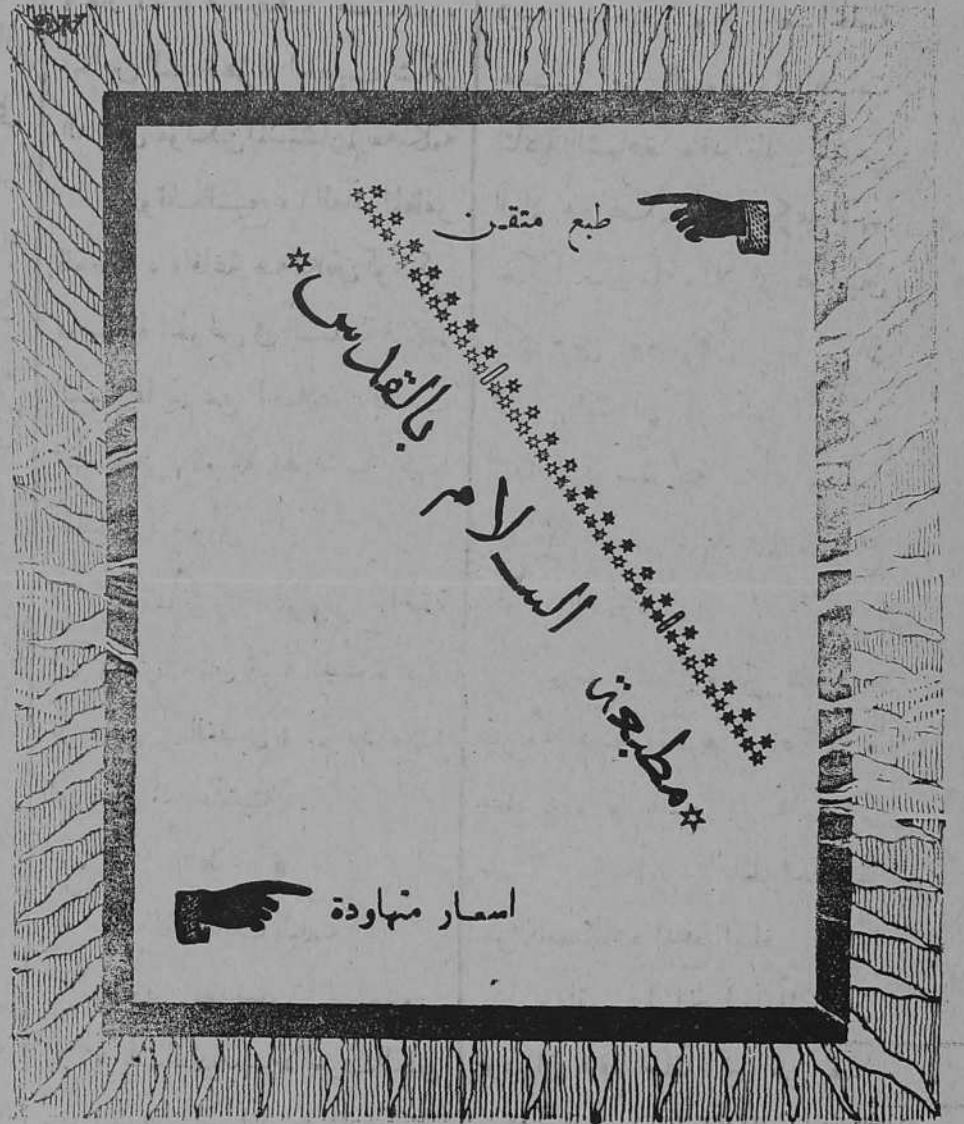 طبع متقين
مطبعة السلام بالقدس
اسعار متهاودة